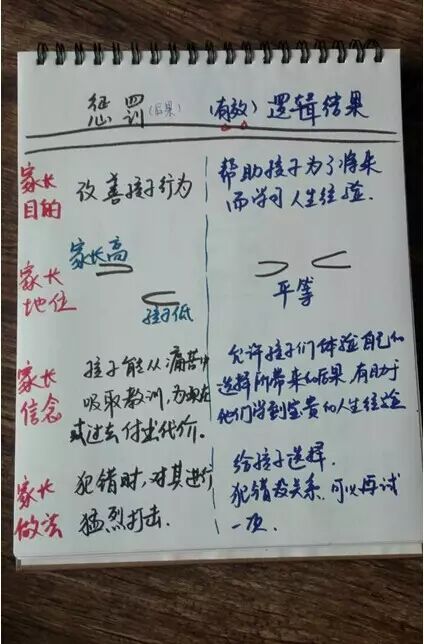 惩罚(后果) (有效)逻辑结果
家长目的
改善孩子行为
帮助孩子为了将来
而学习人生经验.
家长地位
家长高
孩子低
平等
家长信念
孩子能从痛苦中
吸取教训,为现在
或过去付出代价。
允许孩子们体验自己和
选择所带来的后果,有助于
他们学到宝贵的人生经验
家长做法
犯错时,对其进行
猛烈打击.
给孩子选择.
犯错没关系,可以再试
一项.